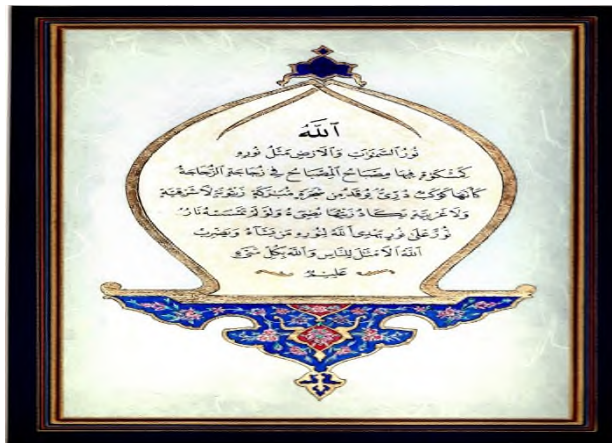 ٱللَّهُ
نُورُ ٱلسَّمَٰوَٰتِ وَٱلْأَرْضِ مَثَلُ نُورِهِ
كَمِشْكَوٰةٍ فِيهَا مِصْبَاحٌ ٱلْمِصْبَاحُ فِي زُجَاجَةٍ ٱلزُّجَاجَةُ
كَأَنَّهَا كَوْكَبٌ دُرِّيٌّ يُوقَدُ مِن شَجَرَةٍ مُّبَٰرَكَةٍ زَيْتُونَةٍ لَّا شَرْقِيَّةٍ
وَلَا غَرْبِيَّةٍ يَكَادُ زَيْتُهَا يُضِيٓءُ وَلَوْ لَمْ تَمْسَسْهُ نَارٌ
نُّورٌ عَلَىٰ نُورٍ يَهْدِي ٱللَّهُ لِنُورِهِ مَن يَشَآءُ وَيَضْرِبُ
ٱللَّهُ ٱلْأَمْثَٰلَ لِلنَّاسِ وَٱللَّهُ بِكُلِّ شَيْءٍ
عَلِيمٌ